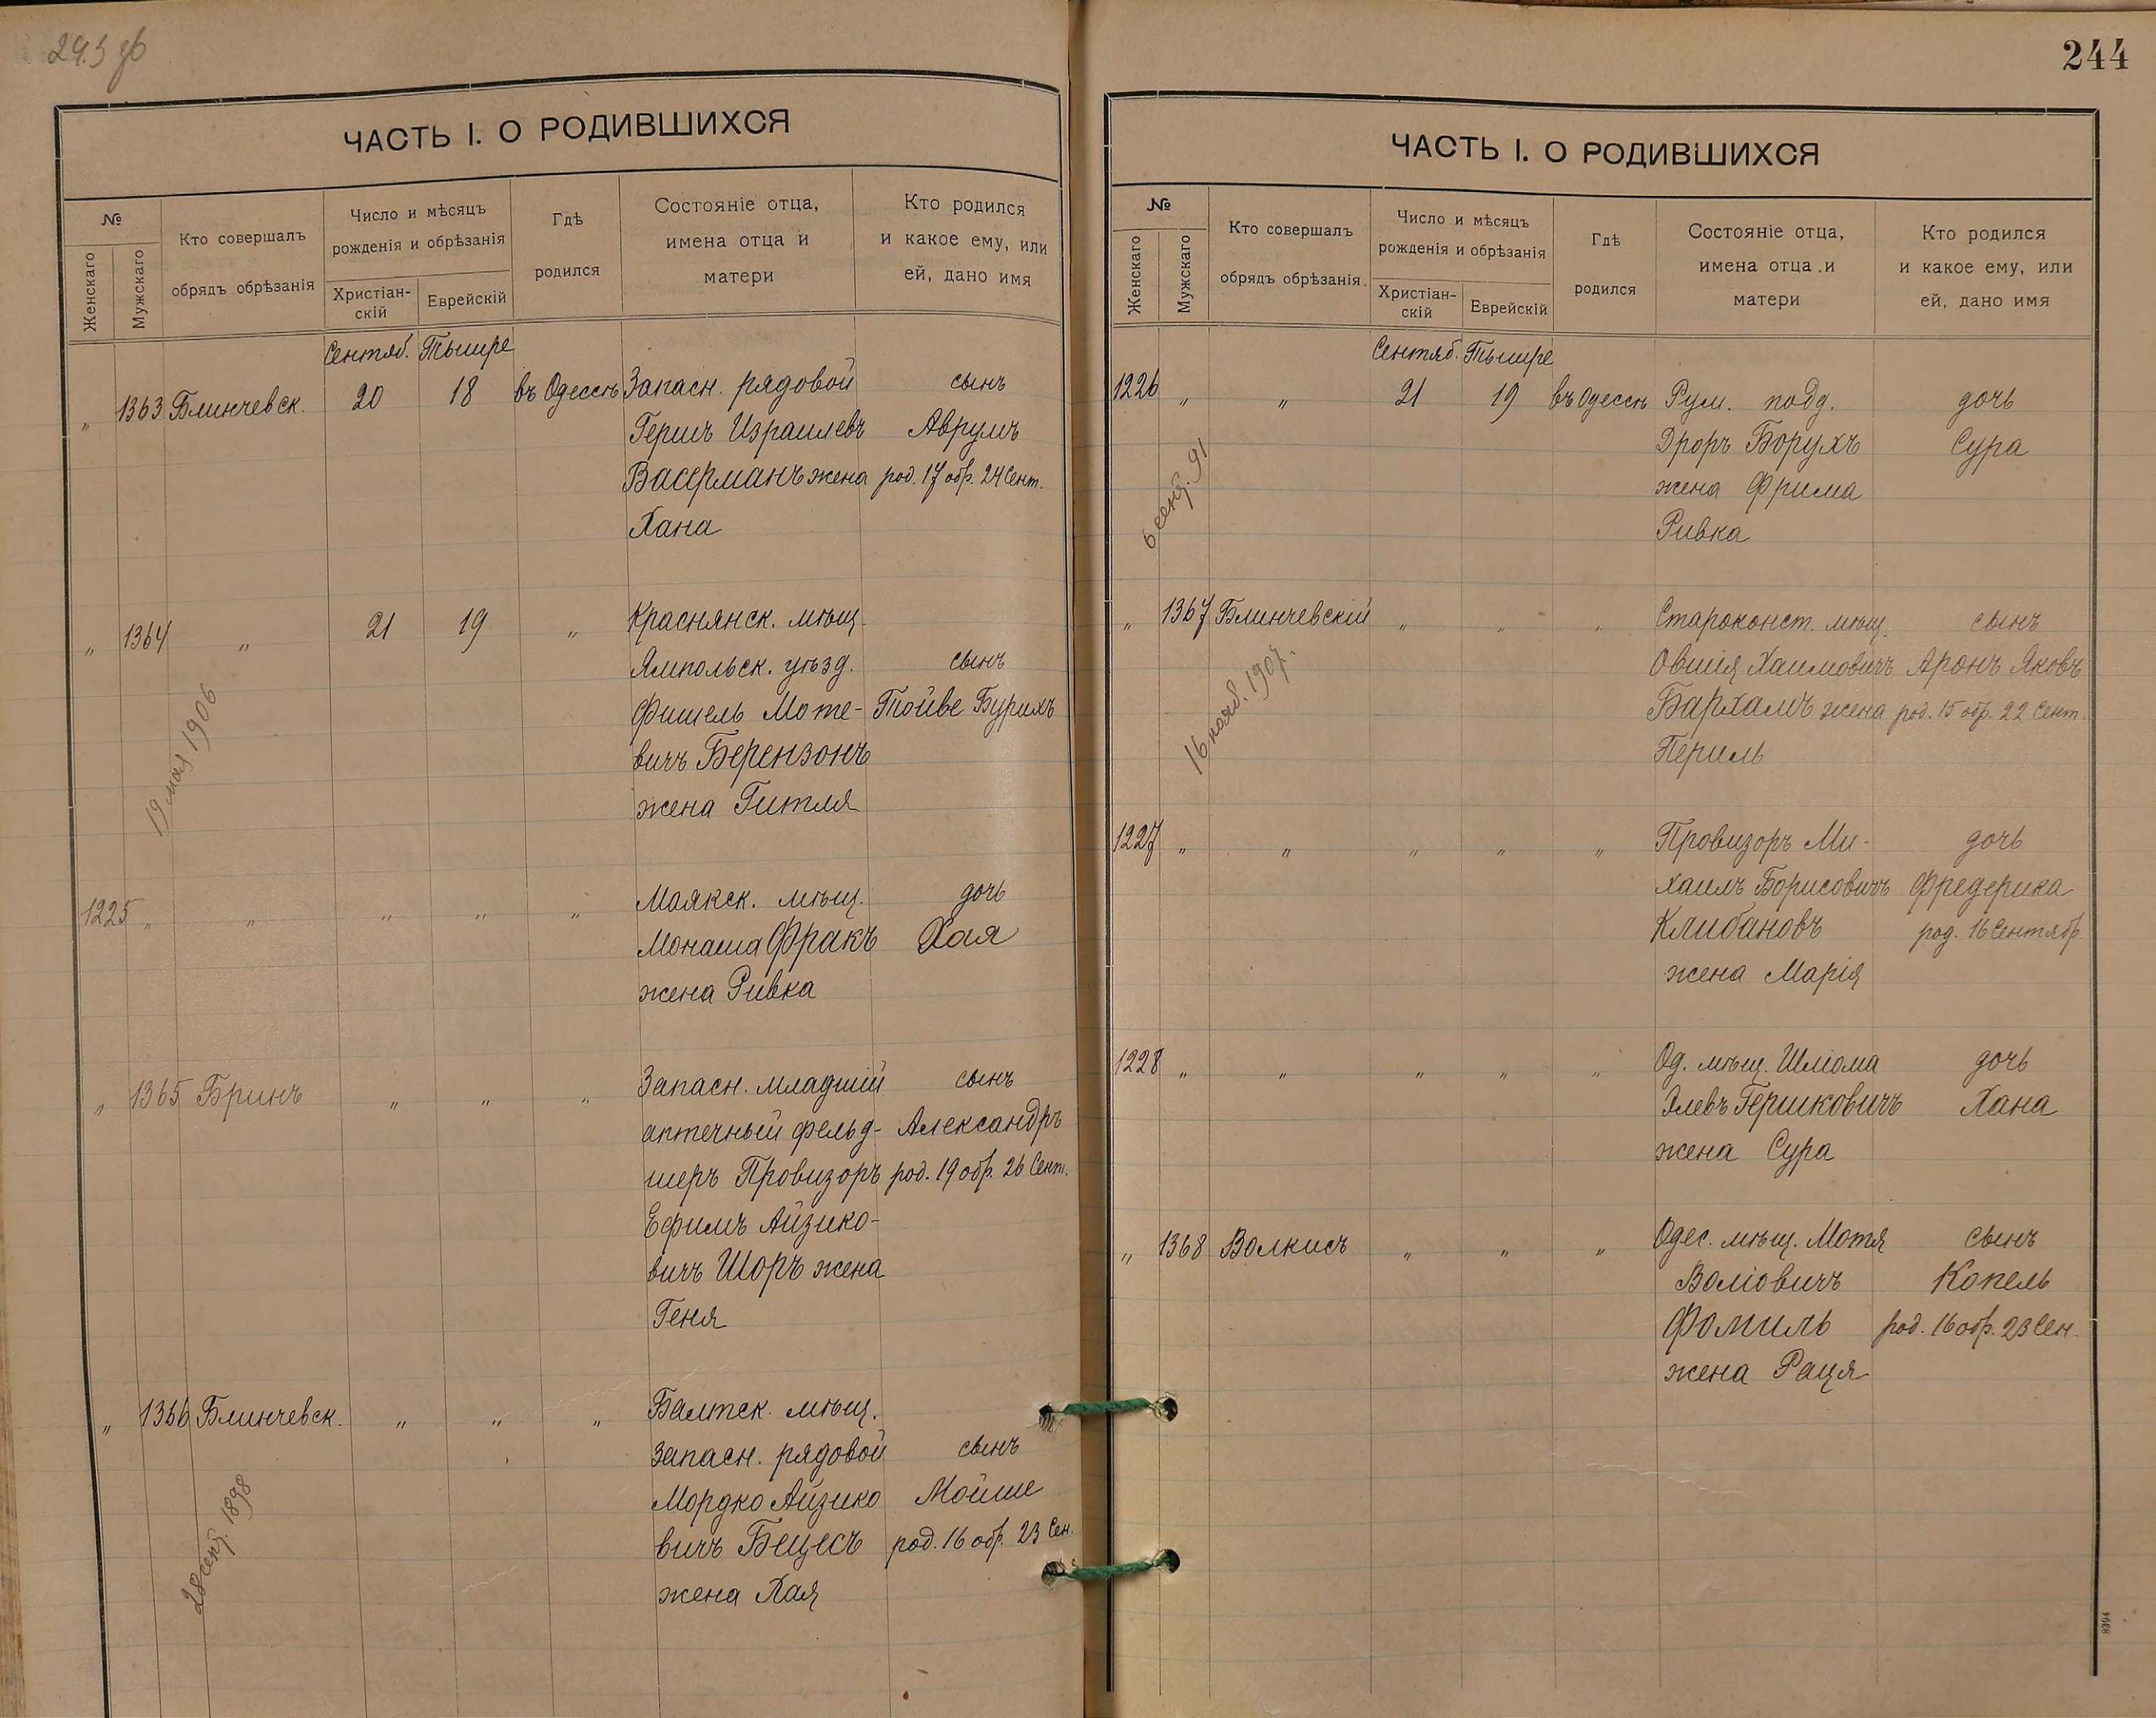 243 зб
ЧАСТЬ I. О РОДИВШИХСЯ
№
Женскаго
Мужскаго
Кто совершалъ
обрядъ обрѣзанія
Число и мѣсяцъ
рожденія и обрѣзанія
Христіан-
скій
Еврейскій
Гдѣ
родился
Состояніе отца,
имена отца и
матери
Кто родился
и какое ему, или
ей, дано имя
Сентяб. Тышре
„ 1363 Блинчевск. 20 18 въ Одессѣ Запасн. рядовой сынъ
Гершъ Израилевъ Аврумъ
Васерманъ жена род. 17 обр. 24 Сент.
Хана
„ 1364 „ 21 19 „ Краснянск. мѣщ.
Ямпольск. уѣзд. сынъ
Фишель Моте- Тойве Бурихъ
вичъ Берензонъ
жена Гитля
19 мая 1906
1225 „ „ „ „ „ Маякск. мѣщ. дочь
Монаша Фракъ Хая
жена Ривка
„ 1365 Бринъ „ „ „ Запасн. младшій сынъ
аптечный фельд- Александръ
шеръ Провизоръ род. 19 обр. 26 Сент.
Ефимъ Айзико-
вичъ Шоръ жена
Геня
„ 1366 Блинчевск. „ „ „ Балтск. мѣщ.
Запасн. рядовой сынъ
Мордко Айзико Мойше
вичъ Бецесъ род. 16 обр. 23 Сен.
жена Хая
28 сент. 1898
244
ЧАСТЬ I. О РОДИВШИХСЯ
№
Женскаго
Мужскаго
Кто совершалъ
обрядъ обрѣзанія
Число и мѣсяцъ
рожденія и обрѣзанія
Христіан-
скій
Еврейскій
Гдѣ
родился
Состояніе отца,
имена отца и
матери
Кто родился
и какое ему, или
ей, дано имя
Сентяб. Тышре
1226 „ „ 21 19 въ Одессѣ Рум. подд. дочь
Дроръ Борухъ Сура
жена Фрима
Ривка
6 сент. 91
„ 1367 Блинчевскій „ „ „ Староконст. мѣщ. сынъ
Овшія Хаимовичъ Аронъ Яковъ
Бархамъ жена род. 15 обр. 22 Сент.
Периль
16 нояб. 1907.
1227 „ „ „ „ „ Провизоръ Ми- дочь
хаилъ Борисовичъ Фредерика
Клибановъ род. 16 Сентябр.
жена Марія
1228 „ „ „ „ „ Од. мѣщ. Шліома дочь
Элевъ Гершковичъ Хана
жена Сура
„ 1368 Волкисъ „ „ „ Одес. мѣщ. Мотя сынъ
Воліовичъ Копель
Фомиль род. 16 обр. 23 Сен.
жена Рація
8394